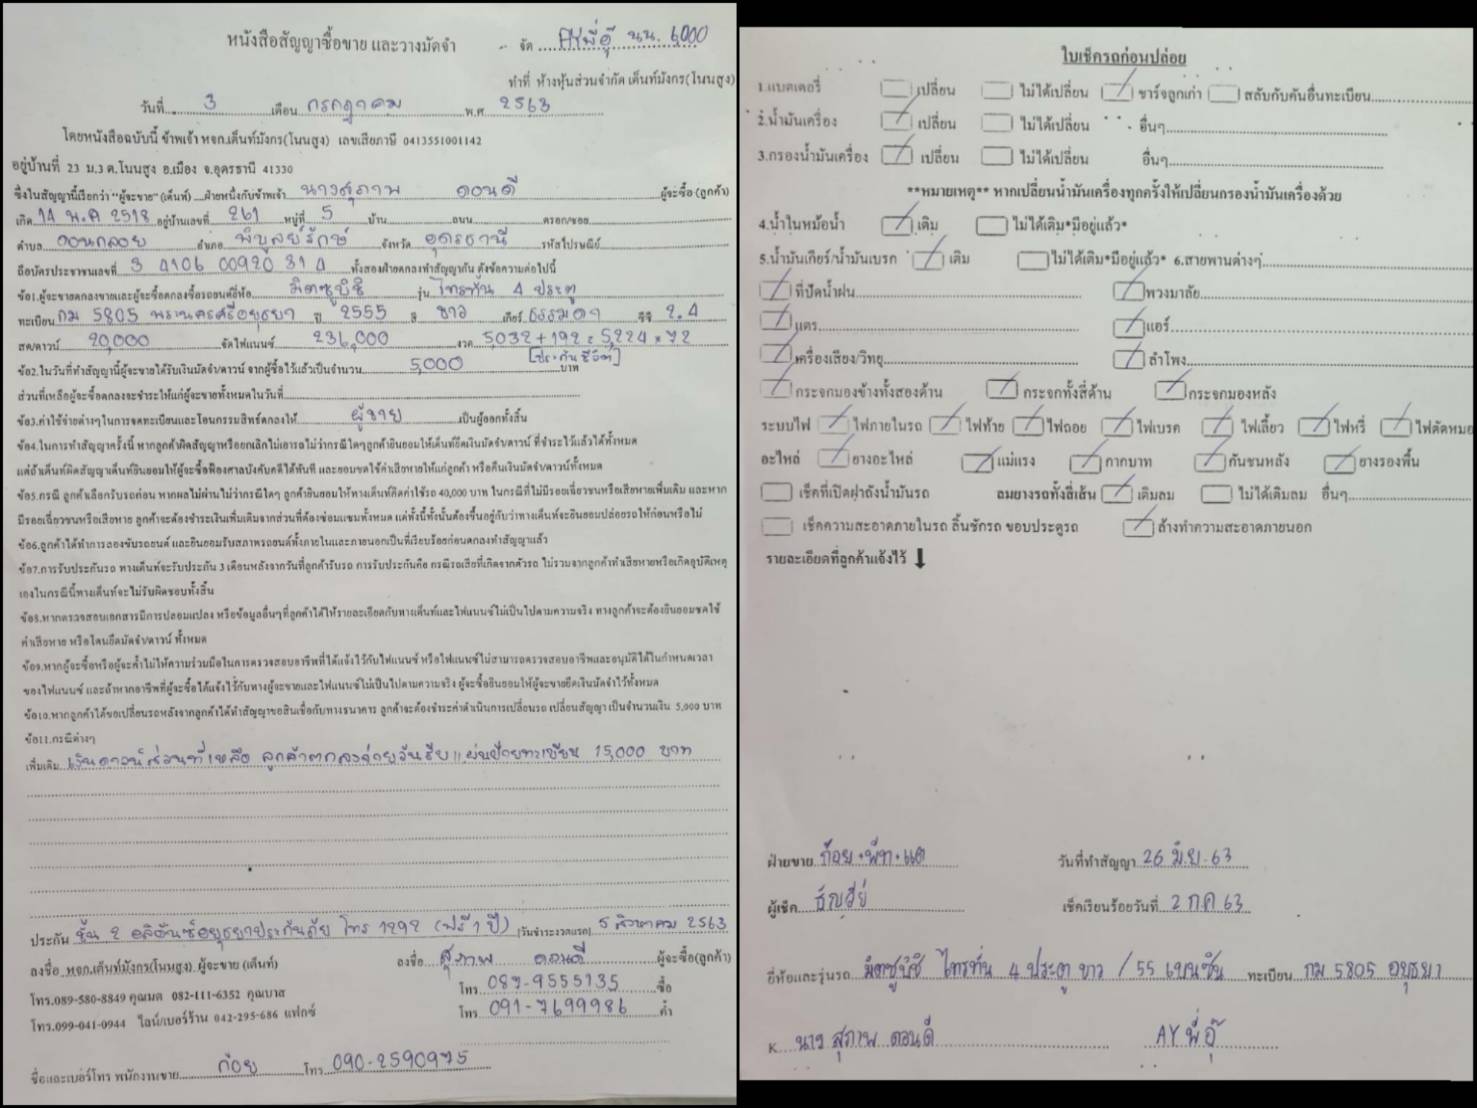 หนังสือสัญญาซื้อขาย และวางมัดจำ
จัด AYพี่อู๊ นน. 6,000
ทำที่ ห้างหุ้นส่วนจำกัด เต็นท์มังกร(โนนสูง)
วันที่ 3 เดือน กรกฎาคม พ.ศ 2563
โดยหนังสือฉบับนี้ ข้าพเจ้า หจก.เต็นท์มังกร(โนนสูง) เลขเสียภาษี 0413551001142
อยู่บ้านที่ 23 ม.3 ต.โนนสูง อ.เมือง จ.อุดรธานี 41330
ซึ่งในสัญญานี้เรียกว่า "ผู้จะขาย" (เต็นท์) ฝ่ายหนึ่งกับข้าพเจ้า นางสุภาพ ดอนดี ผู้จะซื้อ (ลูกค้า)
เกิด 14 พ.ค 2518 อยู่บ้านเลขที่ 261 หมู่ที่ 5 บ้าน ถนน ตรอก/ซอย
ตำบล ดอนกลอย อำเภอ พิบูลย์รักษ์ จังหวัด อุดรธานี รหัสไปรษณีย์
ถือบัตรประชาชนเลขที่ 3 4106 00920 31 4 ทั้งสองฝ่ายตกลงทำสัญญากัน ดังข้อความต่อไปนี้
ข้อ1.ผู้จะขายตกลงขายและผู้จะซื้อตกลงซื้อรถยนต์ยี่ห้อ มิตซูบิชิ รุ่น ไทรทัน 4 ประตู
ทะเบียน กม 5805 พระนครศรีอยุธยา ปี 2555 สี ขาว เกียร์ ธรรมดา ซีซี 2.4
สด/ดาวน์ 20,000 จัดไฟแนนซ์ 236,000 งวด 5032+192=5,224×72
[ประกันชีวิต]
ข้อ2.ในวันที่ทำสัญญานี้ผู้จะขายได้รับเงินมัดจำ/ดาวน์ จากผู้ซื้อไว้แล้วเป็นจำนวน 5,000 บาท
ส่วนที่เหลือผู้จะซื้อตกลงจะชำระให้แก่ผู้จะขายทั้งหมดในวันที่
ข้อ3.ค่าใช้จ่ายต่างๆในการจดทะเบียนและโอนกรรมสิทธ์ตกลงให้ ผู้ขาย เป็นผู้ออกทั้งสิ้น
ข้อ4.ในการทำสัญญาครั้งนี้ หากลูกค้าผิดสัญญาหรือยกเลิกไม่เอารถไม่ว่ากรณีใดๆลูกค้ายินยอมให้เต็นท์ยึดเงินมัดจำ/ดาวน์ ที่ชำระไว้แล้วได้ทั้งหมด
แต่ถ้าเต็นท์ผิดสัญญาเต็นท์ยินยอมให้ผู้จะซื้อฟ้องศาลบังคับคดีได้ทันที และยอมชดใช้ค่าเสียหายให้แก่ลูกค้า หรือคืนเงินมัดจำ/ดาวน์ทั้งหมด
ข้อ5.กรณี ลูกค้าเลือกรับรถก่อน หากผลไม่ผ่านไม่ว่ากรณีใดๆ ลูกค้ายินยอมให้ทางเต็นท์คิดค่าใช้รถ 40,000 บาท ในกรณีที่ไม่มีรอยเฉี่ยวชนหรือเสียหายเพิ่มเติม และหาก
มีรอยเฉี่ยวชนหรือเสียหาย ลูกค้าจะต้องชำระเงินเพิ่มเติมจากส่วนที่ต้องซ่อมแซมทั้งหมด แต่ทั้งนี้ทั้งนั้นต้องขึ้นอยู่กับว่าทางเต็นท์จะยินยอมปล่อยรถให้ก่อนหรือไม่
ข้อ6.ลูกค้าได้ทำการลองขับรถยนต์ และยินยอมรับสภาพรถยนต์ทั้งภายในและภายนอกเป็นที่เรียบร้อยก่อนตกลงทำสัญญาแล้ว
ข้อ7.การรับประกันรถ ทางเต็นท์จะรับประกัน 3 เดือนหลังจากวันที่ลูกค้ารับรถ การรับประกันคือ กรณีรถเสียที่เกิดจากตัวรถ ไม่รวมจากลูกค้าทำเสียหายหรือเกิดอุบัติเหตุ
เองในกรณีนี้ทางเต็นท์จะไม่รับผิดชอบทั้งสิ้น
ข้อ8.หากตรวจสอบเอกสารมีการปลอมแปลง หรือข้อมูลอื่นๆที่ลูกค้าได้ให้รายละเอียดกับทางเต็นท์และไฟแนนซ์ไม่เป็นไปตามความจริง ทางลูกค้าจะต้องยินยอมชดใช้
ค่าเสียหาย หรือโดนยึดมัดจำ/ดาวน์ ทั้งหมด
ข้อ9.หากผู้จะซื้อหรือผู้จะค้ำไม่ให้ความร่วมมือในการตรวจสอบอาชีพที่ได้แจ้งไว้กับไฟแนนซ์ หรือไฟแนนซ์ไม่สามารถตรวจสอบอาชีพและอนุมัติได้ในกำหนดเวลา
ของไฟแนนซ์ และถ้าหากอาชีพที่ผู้จะซื้อได้แจ้งไว้กับทางผู้จะขายและไฟแนนซ์ไม่เป็นไปตามความจริง ผู้จะซื้อยินยอมให้ผู้จะขายยึดเงินมัดจำไว้ทั้งหมด
ข้อ10.หากลูกค้าได้ขอเปลี่ยนรถหลังจากลูกค้าได้ทำสัญญาขอสินเชื่อกับทางธนาคาร ลูกค้าจะต้องชำระค่าดำเนินการเปลี่ยนรถ เปลี่ยนสัญญา เป็นจำนวนเงิน 5,000 บาท
ข้อ11.กรณีต่างๆ
เพิ่มเติม เงินดาวน์ส่วนที่เหลือ ลูกค้าตกลงจ่ายวันรับแผ่นป้ายทะเบียน 15,000 บาท
ประกัน ชั้น 2 อลิอันซ์อยุธยาประกันภัย โทร 1292 (ฟรี 1 ปี) [วันชำระงวดแรก] 5 สิงหาคม 2563
ลงชื่อ หจก.เต็นท์มังกร(โนนสูง) ผู้จะขาย (เต็นท์) ลงชื่อ สุภาพ ดอนดี ผู้จะซื้อ(ลูกค้า)
โทร.089-580-8849 คุณมด 082-111-6352 คุณบาส โทร 087-9555735 ซื้อ
โทร.099-041-0944 ไลน์/เบอร์ร้าน 042-295-686 แฟกซ์ โทร 091-7699986 ค้ำ
ชื่อและเบอร์โทร พนักงานขาย ก้อย โทร 090-2590975
ใบเช็ครถก่อนปล่อย
1.แบตเตอรี่ เปลี่ยน ไม่ได้เปลี่ยน ชาร์จลูกเก่า สลับกับคันอื่นทะเบียน
2.น้ำมันเครื่อง เปลี่ยน ไม่ได้เปลี่ยน อื่นๆ
3.กรองน้ำมันเครื่อง เปลี่ยน ไม่ได้เปลี่ยน อื่นๆ
**หมายเหตุ** หากเปลี่ยนน้ำมันเครื่องทุกครั้งให้เปลี่ยนกรองน้ำมันเครื่องด้วย
4.น้ำในหม้อน้ำ เติม ไม่ได้เติม*มีอยู่แล้ว*
5.น้ำมันเกียร์/น้ำมันเบรก เติม ไม่ได้เติม*มีอยู่แล้ว* 6.สายพานต่างๆ
ที่ปัดน้ำฝน พวงมาลัย
แตร แอร์
เครื่องเสียง/วิทยุ ลำโพง
กระจกมองข้างทั้งสองด้าน กระจกทั้งสี่ด้าน กระจกมองหลัง
ระบบไฟ ไฟภายในรถ ไฟท้าย ไฟถอย ไฟเบรค ไฟเลี้ยว ไฟหรี่ ไฟตัดหมอ
อะไหล่ ยางอะไหล่ แม่แรง กากบาท กันชนหลัง ยางรองพื้น
เช็คที่เปิดฝาถังน้ำมันรถ ลมยางรถทั้งสี่เส้น เติมลม ไม่ได้เติมลม อื่นๆ
เช็คความสะอาดภายในรถ ลิ้นชักรถ ขอบประตูรถ ล้างทำความสะอาดภายนอก
รายละเอียดที่ลูกค้าแจ้งไว้
ฝ่ายขาย ก้อย+พัท+แต วันที่ทำสัญญา 26 มิ.ย. 63
ผู้เช็ค เช็คเรียบร้อยวันที่ 2 กค 63
ยี่ห้อและรุ่นรถ มิตซูบิชิ ไทรทัน 4 ประตู ขาว / 55 เบนซิน ทะเบียน กม 5805 อยุธยา
K. นาง สุภาพ ดอนดี AY พี่อู๊